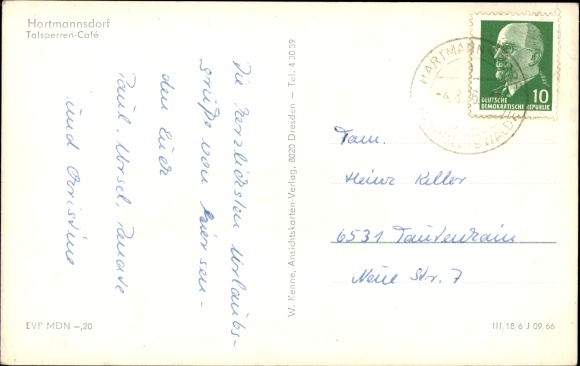 Hartmannsdorf
Talsperren-Café
Die herzlichsten Urlaubs-
grüße von hier sen-
den Euch
Paul, Ursel, Renate
und Christine
W. Kenne, Ansichtskarten-Verlag, 8020 Dresden – Tel. 4 30 59
DEUTSCHE
DEMOKRATISCHE REPUBLIK
10
HARTMANN
Fam.
Heinz Keller
6531 Tautenhain
Neue Str. 7
EVP MDN –,20
III, 18, 6 J 09.66